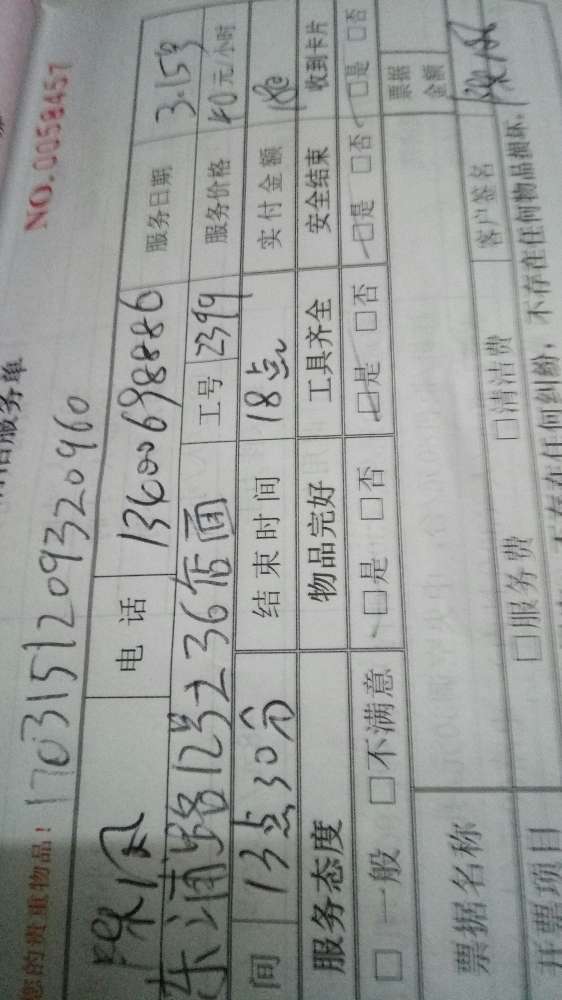 NO.0058457
服务单
您的贵重物品! 17031512093209​60
电话 13600698886 服务日期 3.15号
东浦路12号之36店面 工号 2399 服务价格 40元/小时
间 13点30分 结束时间 18点 实付金额 180
服务态度 物品完好 工具齐全 安全结束 收到卡片
□一般 □不满意 □是 □否 □是 □否 □是 □否 □是 □否
票据名称 票据金额
开票项目 □服务费 □清洁费 客户签名
不存在任何纠纷, 不存在任何物品损坏,